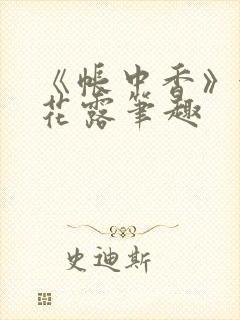 《帐中香》
花露笔趣
史迪斯